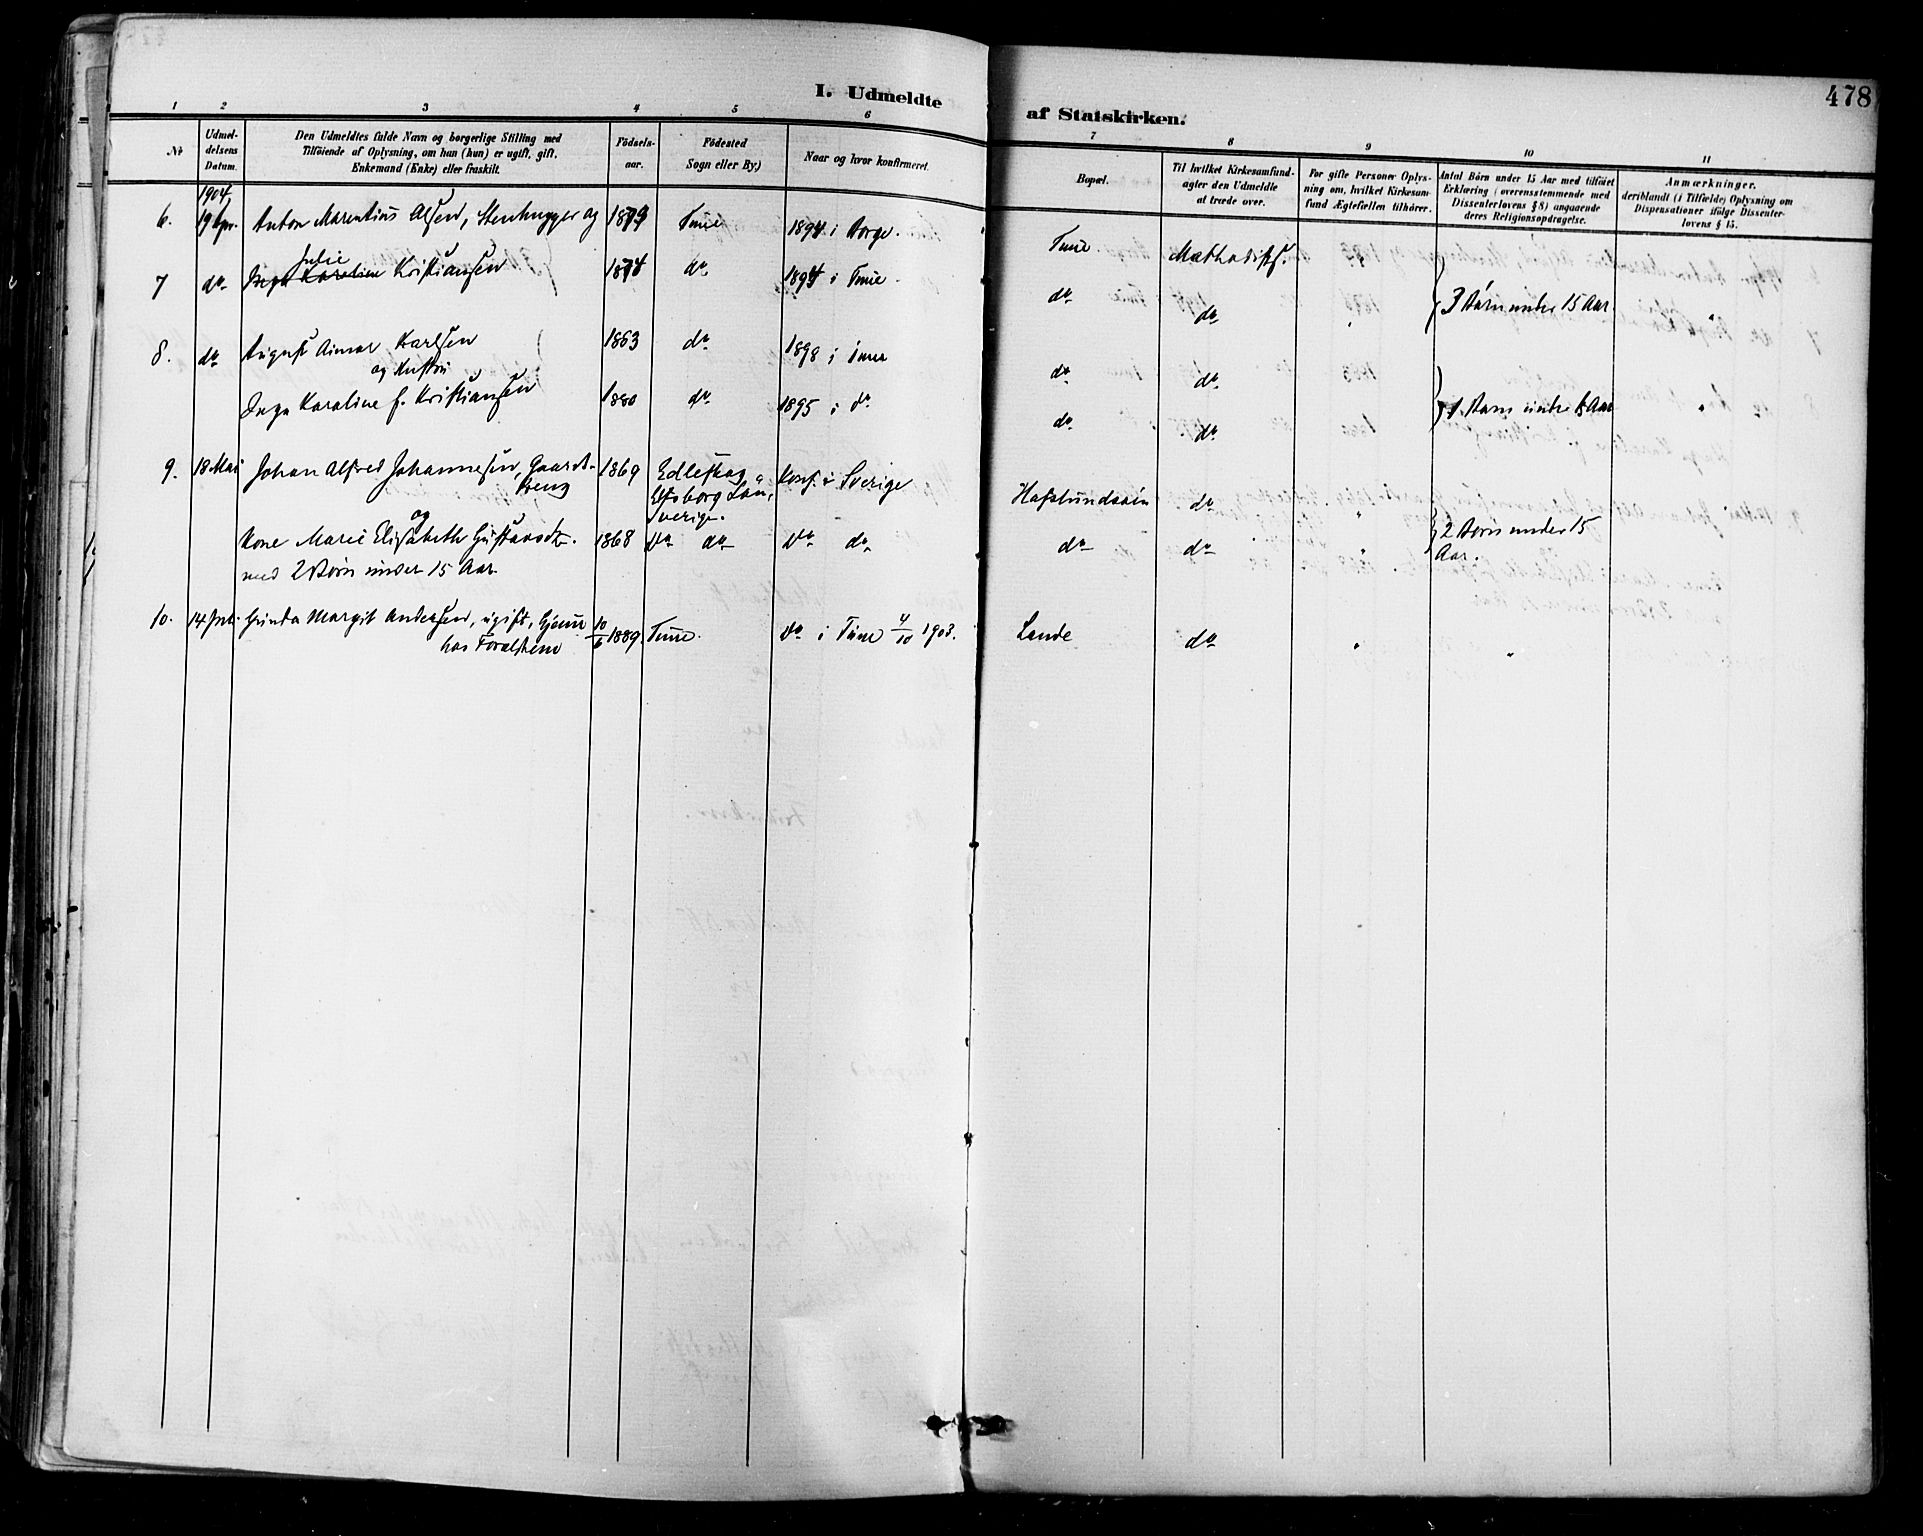 478
I. Udmeldte af Statskirken.
1 2 3 4 5 6 7 8 9 10 11
No
Udmel-
delsens
Datum.
Den Udmeldtes fulde Navn og borgerlige Stilling med
Tilføiende af Oplysning, om han (hun) er ugift, gift,
Enkemand (Enke) eller fraskilt.
Födsels-
aar.
Födested
Sogn eller By.)
Naar og hvor konfirmeret.
Bopæl.
Til hvilket Kirkesamfund-
agter den Udmeldte
at træde over.
For gifte Personer Oplys-
ning om, hvilket Kirkesam-
fund Ægtefællen tilhörer.
Antal Börn under 15 Aar med tilföiet
Erklæring (overensstemmende med
Dissenterlovens § 8) angaaende
deres Religionsopdragelse.
Anmærkninger.
deriblandt (i Tilfælde) Oplysning om
Dispensationer ifölge Dissenter-
lovens § 15.
1904
6. 19 Apr. Anton Marentius Olsen, Stenhugger og 1879 Tune 1894 i Borge. Tune. Methodistf.
Julie
7 do Inga Karoline Kristiansen 1874 do 1894 i Tune do do " 3 Børn under 15 Aar. "
8. do August Karlsen 1863 do 1898 i Tune do do
og Hustru
Inga Karoline f. Kristiansen 1880 do 1895 i do do do 1 Barn under 15 Aar "
9. 18 Mai Johan Alfred Johannesen, Gaards- 1869 Edleskog Konf. i Sverige Hafslundsøen do "
Elfsborg Län,
Sverige.
og
Kone Marie Elisabeth Gustavsdtr. 1868 do do do do do do " 2 Børn under 15
Aar.
med 2 Børn under 15 Aar.
10. 14 Juli Margit Andersen, ugift, Hjemme 10/6 1889. Tune. do i Tune 4/10 1903. Lande do " "
hos Forældrene